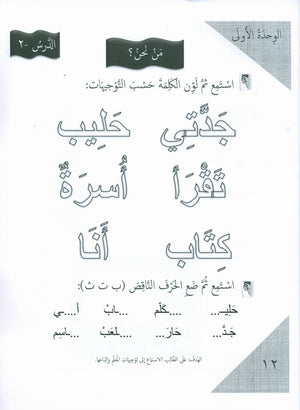 الوحدة الأولى
الدرس -٢
مَنْ نَحْنُ؟
اسْتَمِعْ ثُمَّ لَوِّنِ الْكَلِمَةَ حَسْبَ التَّوْجِيهَاتِ:
جَدَّتِي حَلِيب
تَقْرَأ أُسرَةٌ
كِتَاب أَنَا
اسْتَمِعْ ثُمَّ ضَعِ الْحَرْفَ النَّاقِصَ (ب ت ث):
حَلِيـ... ....كَلَّم ...ـابٌ أ....ـي
جَدَّ... حَارَ... ...لْعَبُ ...ـاسِم
الهدف: على الطالب الاستماع إلى توجيهات المعلم واتباعها.
١٢